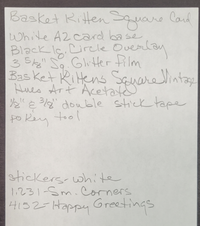 Basket Kitten Square Card
White A2 card base
Black lg Circle Overlay
3 5/8" Sq Glitter Film
Basket Kittens Square Vintage
Hues Art Acetate
1/8" & 3/8" double stick tape
pokey tool
stickers - white
1231 - Sm. Corners
4152 - Happy Greetings